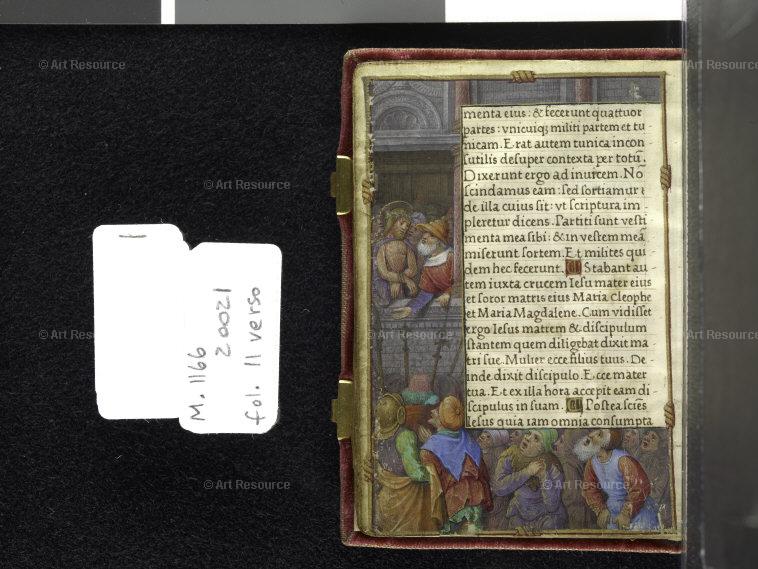 menta eius: & fecerunt quattuor
partes: vnicuiq; militi partem et tu-
nicam. Erat autem tunica incon
sutilis desuper contexta per totū.
Dixerunt ergo ad inuicem. No
scindamus eam: sed sortiamur
de illa cuius sit: vt scriptura im-
pleretur dicens. Partiti sunt vesti
menta mea sibi: & in vestem meā
miserunt sortem. Et milites qui
dem hec fecerunt. Stabant au-
tem iuxta crucem Iesu mater eius
et soror matris eius Maria Cleophe
et Maria Magdalene. Cum vidisset
ergo Iesus matrem & discipulum
stantem quem diligebat dixit ma
tri sue. Mulier ecce filius tuus. De-
inde dixit discipulo. Ecce mater
tua. Et ex illa hora accepit eam di-
scipulus in suam. Postea sciēs
Iesus quia iam omnia consumpta
M. 1166
20021
fol. 11 verso
© Art Resource
© Art Resource
© Art Resource
© Art Resource
© Art Resource
© Art Resource
© Art Resource
© Art Resource
© Art Resource